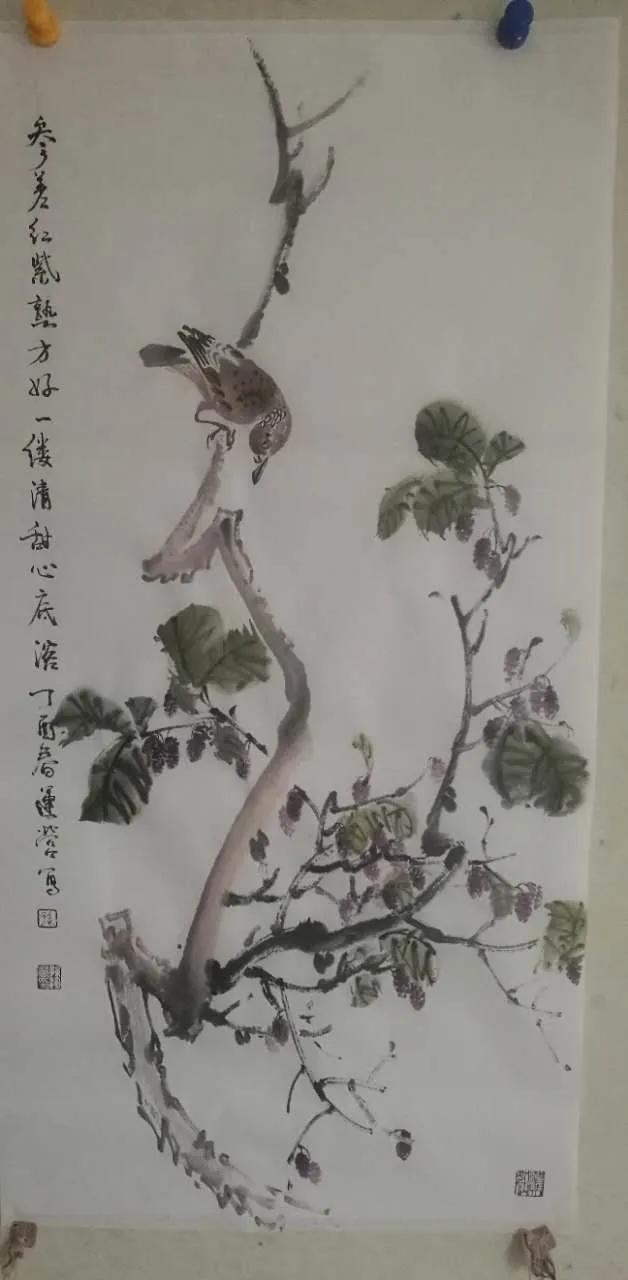 参差红紫熟方好一缕清甜心底溶丁酉春莲营写